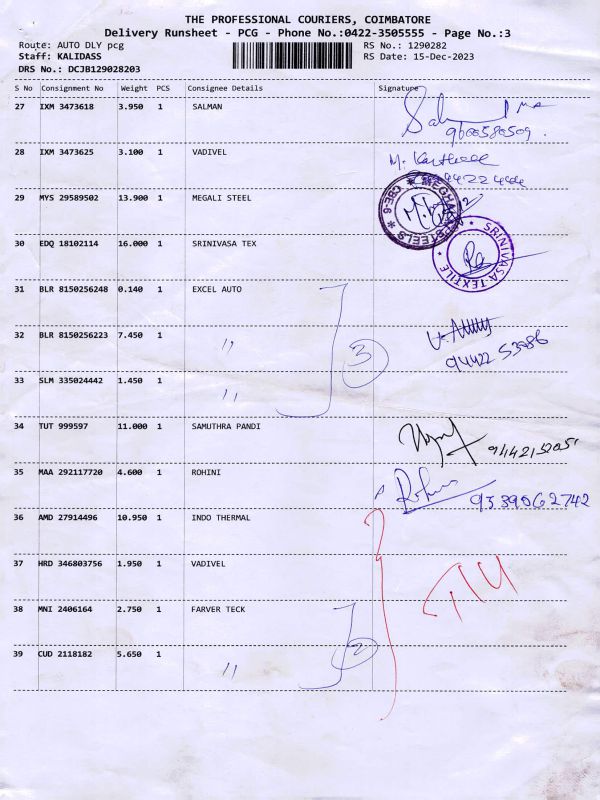 THE PROFESSIONAL COURIERS, COIMBATORE
Delivery Runsheet - PCG - Phone No.:0422-3505555 - Page No.:3
Route: AUTO DLY pcg RS No.: 1290282
Staff: KALIDASS RS Date: 15-Dec-2023
DRS No.: DCJB129028203
S No Consignment No Weight PCS Consignee Details Signature
27 IXM 3473618 3.950 1 SALMAN
9600580509.
28 IXM 3473625 3.100 1 VADIVEL
29 MYS 29589502 13.900 1 MEGALI STEEL
30 EDQ 18102114 16.000 1 SRINIVASA TEX
SRINIVASA TEXTILE
31 BLR 8150256248 0.140 1 EXCEL AUTO
32 BLR 8150256223 7.450 1 〃
3
94422 53986
33 SLM 335024442 1.450 1 〃
34 TUT 999597 11.000 1 SAMUTHRA PANDI
35 MAA 292117720 4.600 1 ROHINI
9339062742
36 AMD 27914496 10.950 1 INDO THERMAL
37 HRD 346803756 1.950 1 VADIVEL
38 MNI 2406164 2.750 1 FARVER TECK
2
39 CUD 2118182 5.650 1 〃